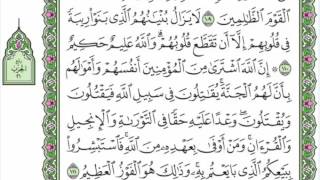 ٱلْقَوْمَ ٱلظَّـٰلِمِينَ ١٠٩ لَا يَزَالُ بُنْيَـٰنُهُمُ ٱلَّذِى بَنَوْا۟ رِيبَةً
فِى قُلُوبِهِمْ إِلَّآ أَن تَقَطَّعَ قُلُوبُهُمْ ۗ وَٱللَّهُ عَلِيمٌ حَكِيمٌ
١١٠ ۞ إِنَّ ٱللَّهَ ٱشْتَرَىٰ مِنَ ٱلْمُؤْمِنِينَ أَنفُسَهُمْ وَأَمْوَٰلَهُم
بِأَنَّ لَهُمُ ٱلْجَنَّةَ ۚ يُقَـٰتِلُونَ فِى سَبِيلِ ٱللَّهِ فَيَقْتُلُونَ
وَيُقْتَلُونَ ۖ وَعْدًا عَلَيْهِ حَقًّا فِى ٱلتَّوْرَىٰةِ وَٱلْإِنجِيلِ
وَٱلْقُرْءَانِ ۚ وَمَنْ أَوْفَىٰ بِعَهْدِهِۦ مِنَ ٱللَّهِ ۚ فَٱسْتَبْشِرُوا۟
بِبَيْعِكُمُ ٱلَّذِى بَايَعْتُم بِهِۦ ۚ وَذَٰلِكَ هُوَ ٱلْفَوْزُ ٱلْعَظِيمُ ١١١